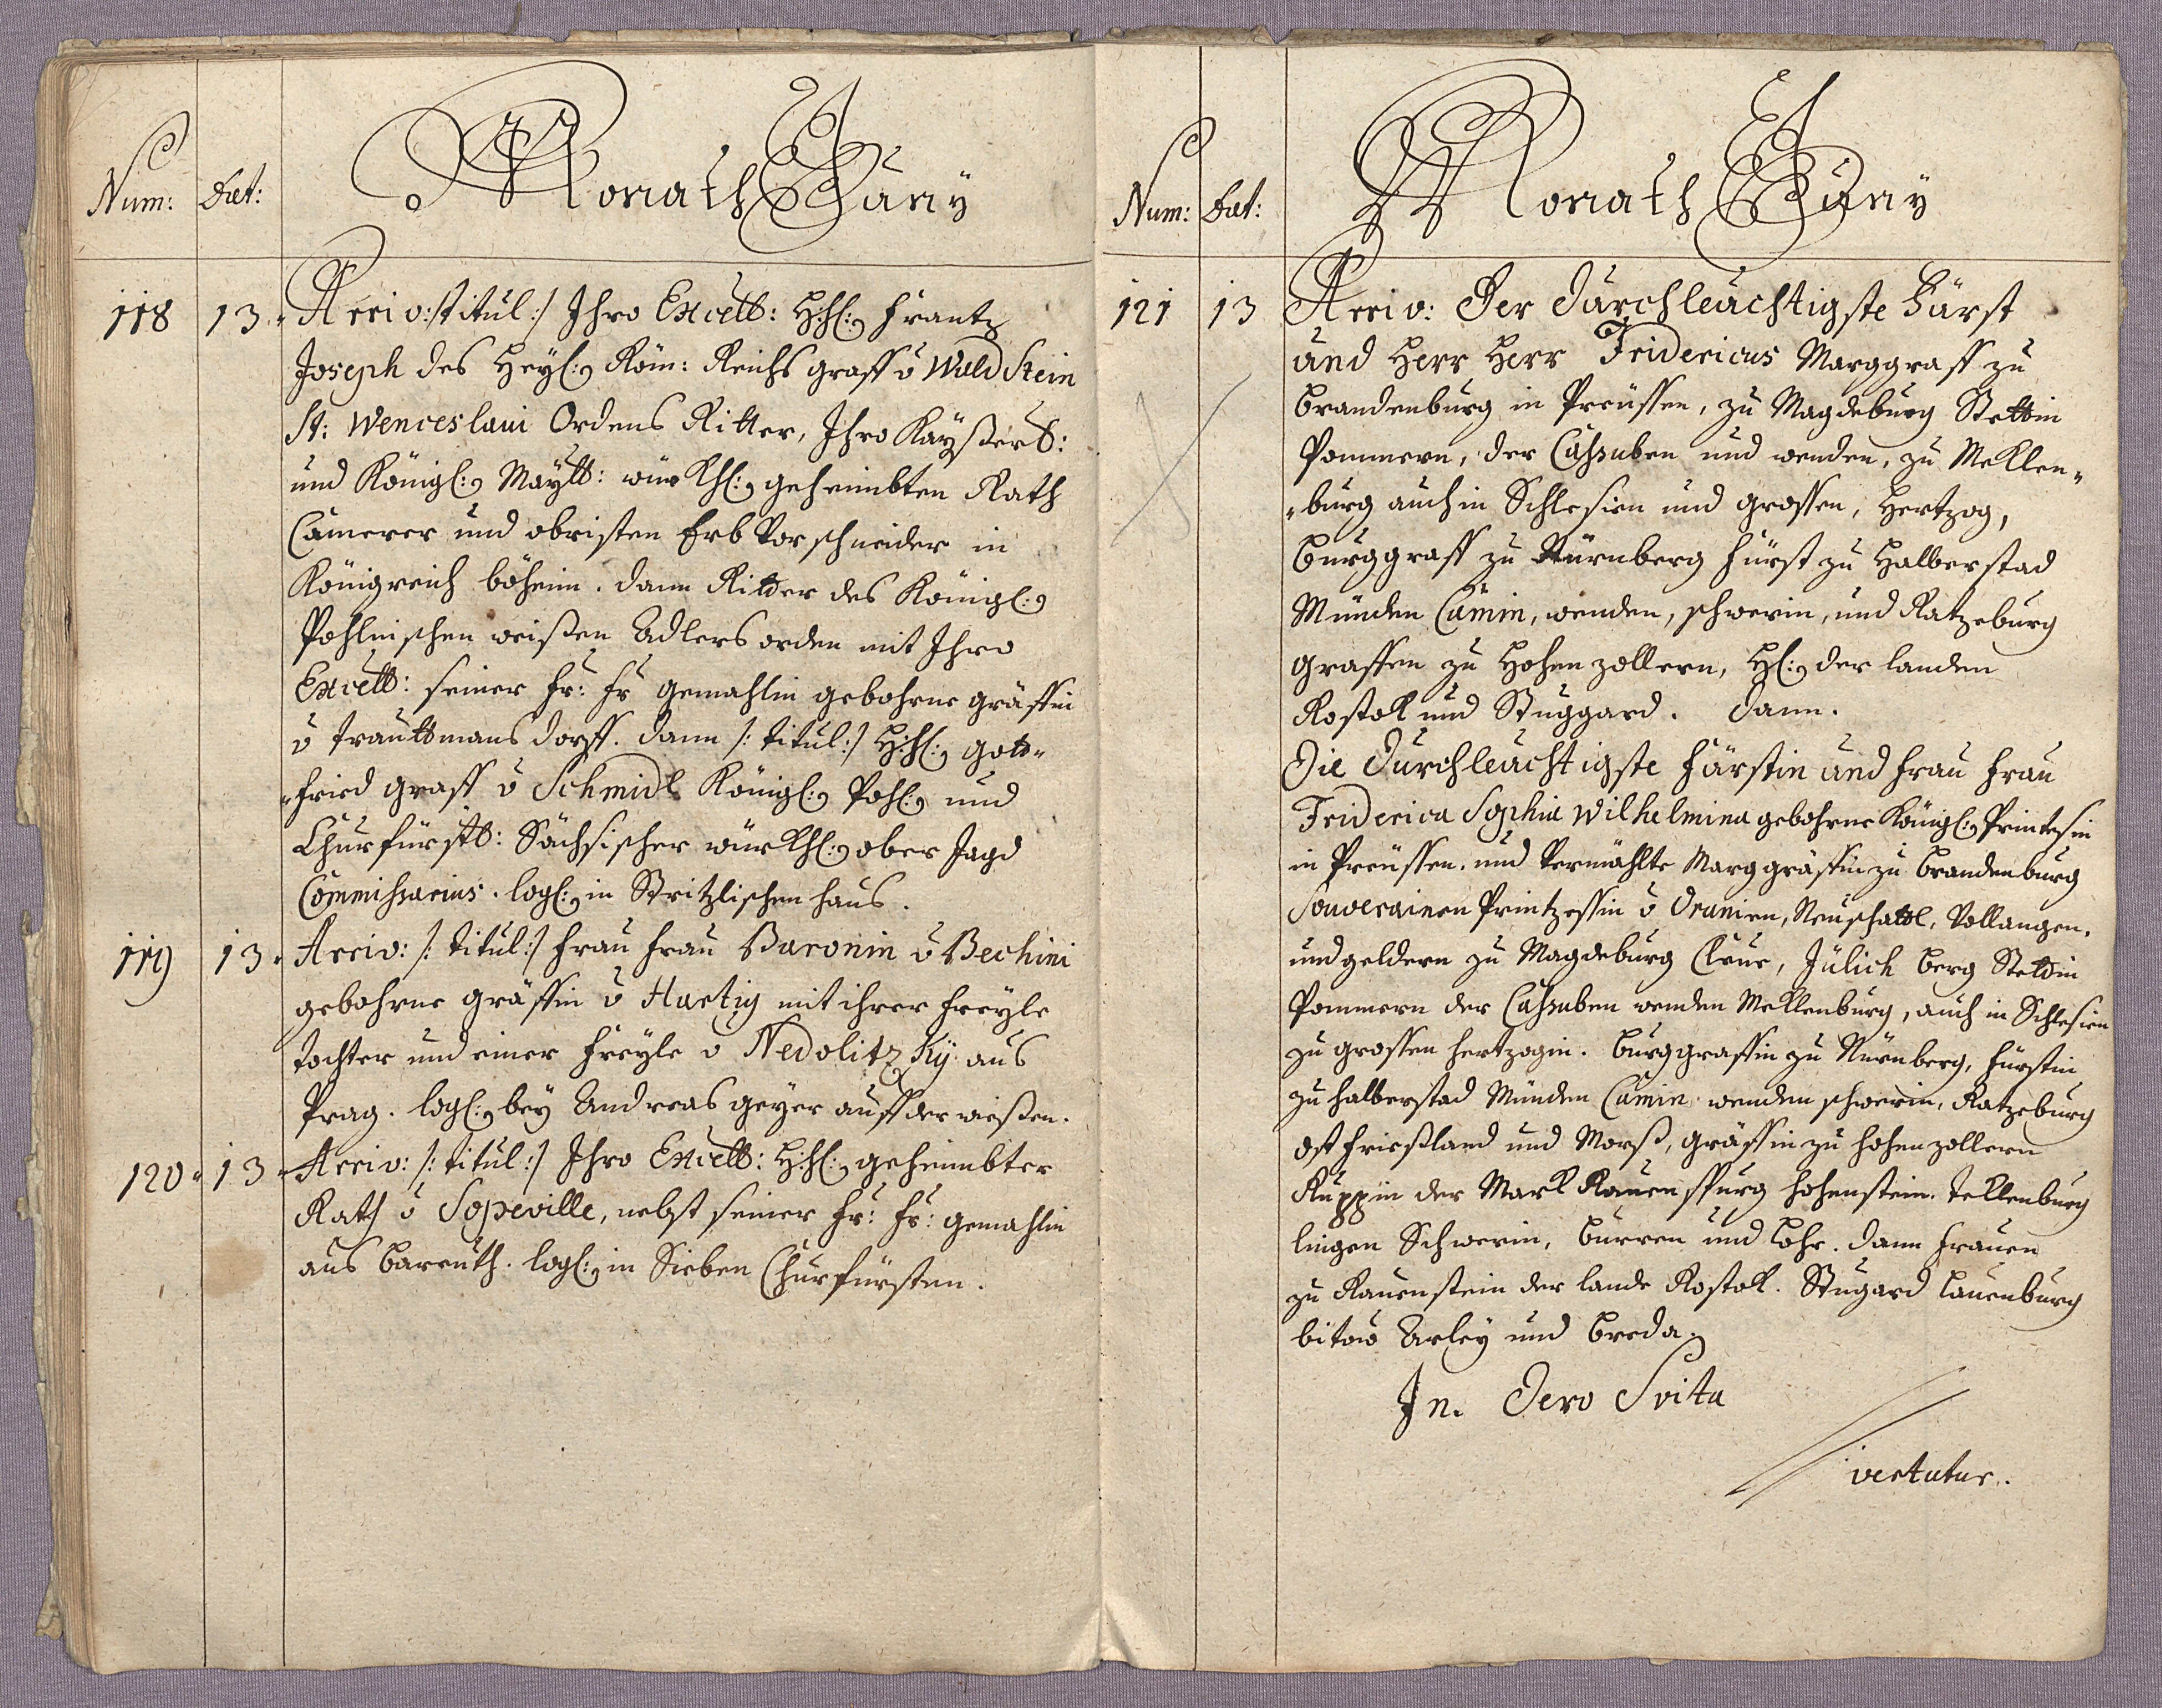 Num: Dat: Monath Juny
118 13. Arriv: /:titul:/ Ihro Excell: H: H: Frantz
Joseph des Heyl: Röm: Reichs Graff v Waldstein
St: Wenceslaui Ordens Ritter, Ihro Kayßerl:
und Königl: Maytt: würkhl: geheimbten Rath
Camerer und obristen Erb Vorschneider in
Königreich böheim. dann Ritter des Königl:
Pohlnischen weißen Adlers orden mit Ihro
Excell: seiner Fr: Fr Gemahlin gebohrne Gräffin
v Trauttmansdorff. dann /:titul:/ H: H: Gott„
„fried Graff v Schmidl Königl: Pohl: und
Churfürstl: Sächsischer würkhl: ober Jagd
Commissarius. logl: in Stritzlischen haus.
119 13. Arriv: /:titul:/ Frau Frau Baronin v Bechini
gebohrne Gräffin v Hartig mit ihrer Freyle
tochter und einer Freyle v Nedolitzky aus
Prag. logl: bey Andreas Geyer auff der wießen.
120. 13. Arriv: /:titul:/ Ihro Excell: H: H: geheimbter
Rath v Sopeville, nebst seiner Fr: Fr: Gemahlin
aus bareuth. logl: in Sieben Churfürsten.
Num: Dat: Monath Juny
121 13 Arriv: Der Durchleuchtigste Fürst
und Herr Herr Fridericus Marggraff zu
brandenburg in Preüssen, zu Magdeburg Stettin
Pommern, der Cassuben und wenden, zu Meklen„
„burg auch in Schlesien und Crossen, Hertzog,
burggraff zu Nürnberg Fürst zu Halberstad
Münden Camin, wenden, schwerin, und Ratzeburg
Graffen zu Hohen zollern, H: der landen
Rostok und Stuggard. Dann.
Die Durchleuchtigste Fürstin und Frau Frau
Friderica Sophia Wilhelmina gebohrne Königl: Printesin
in Preüssen. und Vermählte Marggräffin zu brandenburg
Souverainen Printzessin v Oranien, Neuschattl, Vollangen.
und geldern zu Magdeburg Cleve, Jülich berg Stettin
Pommern der Cassuben wenden Meklenburg, auch in Schlesien
zu Crossen hertzogin. burggraffin zu Nürnberg, Fürstin
zu halberstad Münden Camin wenden schwerin, Ratzeburg
ost Frießland und Morß, Gräffin zu hohen zollern
Ruppin der Mark Rauenspurg hohenstein. teklenburg
lingen Schwerin, burren und Lohr. dann Frauen
zu Rauenstein der lande Rostok. Stugard lauenburg
bitow Arley und breda.
In. Dero Svita
vertatur.